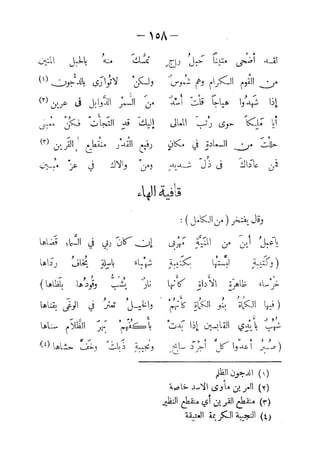 — ١٥٨ —
لقد أضحى متيناً حبل راجٍ تمسك منه بالحبل المتين
من القوم الكرام وهم شموس ولكن لا توارى بالدجون (١)
إذا شهدوا هياجاً قلت أسد من السمر الذوابل في عرين (٢)
أيا ملكاً حوى رتب المعالي إليك قد التجأت فكن معيني
حللت من السعادة في مكان رفيع القدر منقطع القرين (٣)
فمن عاداك في ذل شديد ومن والاك في عز مبين
قافية الهاء
وقال يفتخر (من الكامل) :
يا عبل أين من المنية مهربي إن كان ربي في السماء قضاها
(وكتيبة لبستها بكتيبة شهباء باسلة يخاف رداها
خرساء ظاهرة الأداة كأنها نار يشب وقودها بلظاها)
(فيها الكماة بنو الكماة كأنهم والخيل تعثر في الوغى بقناها
شهب بأيدي القابسين إذا بدت بأكفهم بهر الظلام سناها
(صبر أعدوا كل أجرد سابح ونجيبة ذبلت وخف حشاها (٤)
(١) الدجون الظلم
(٢) العرين مأوى الاسد خاصة
(٣) منقطع القرين أي منقطع النظير
(٤) النجيبة الكريمة العتيقة